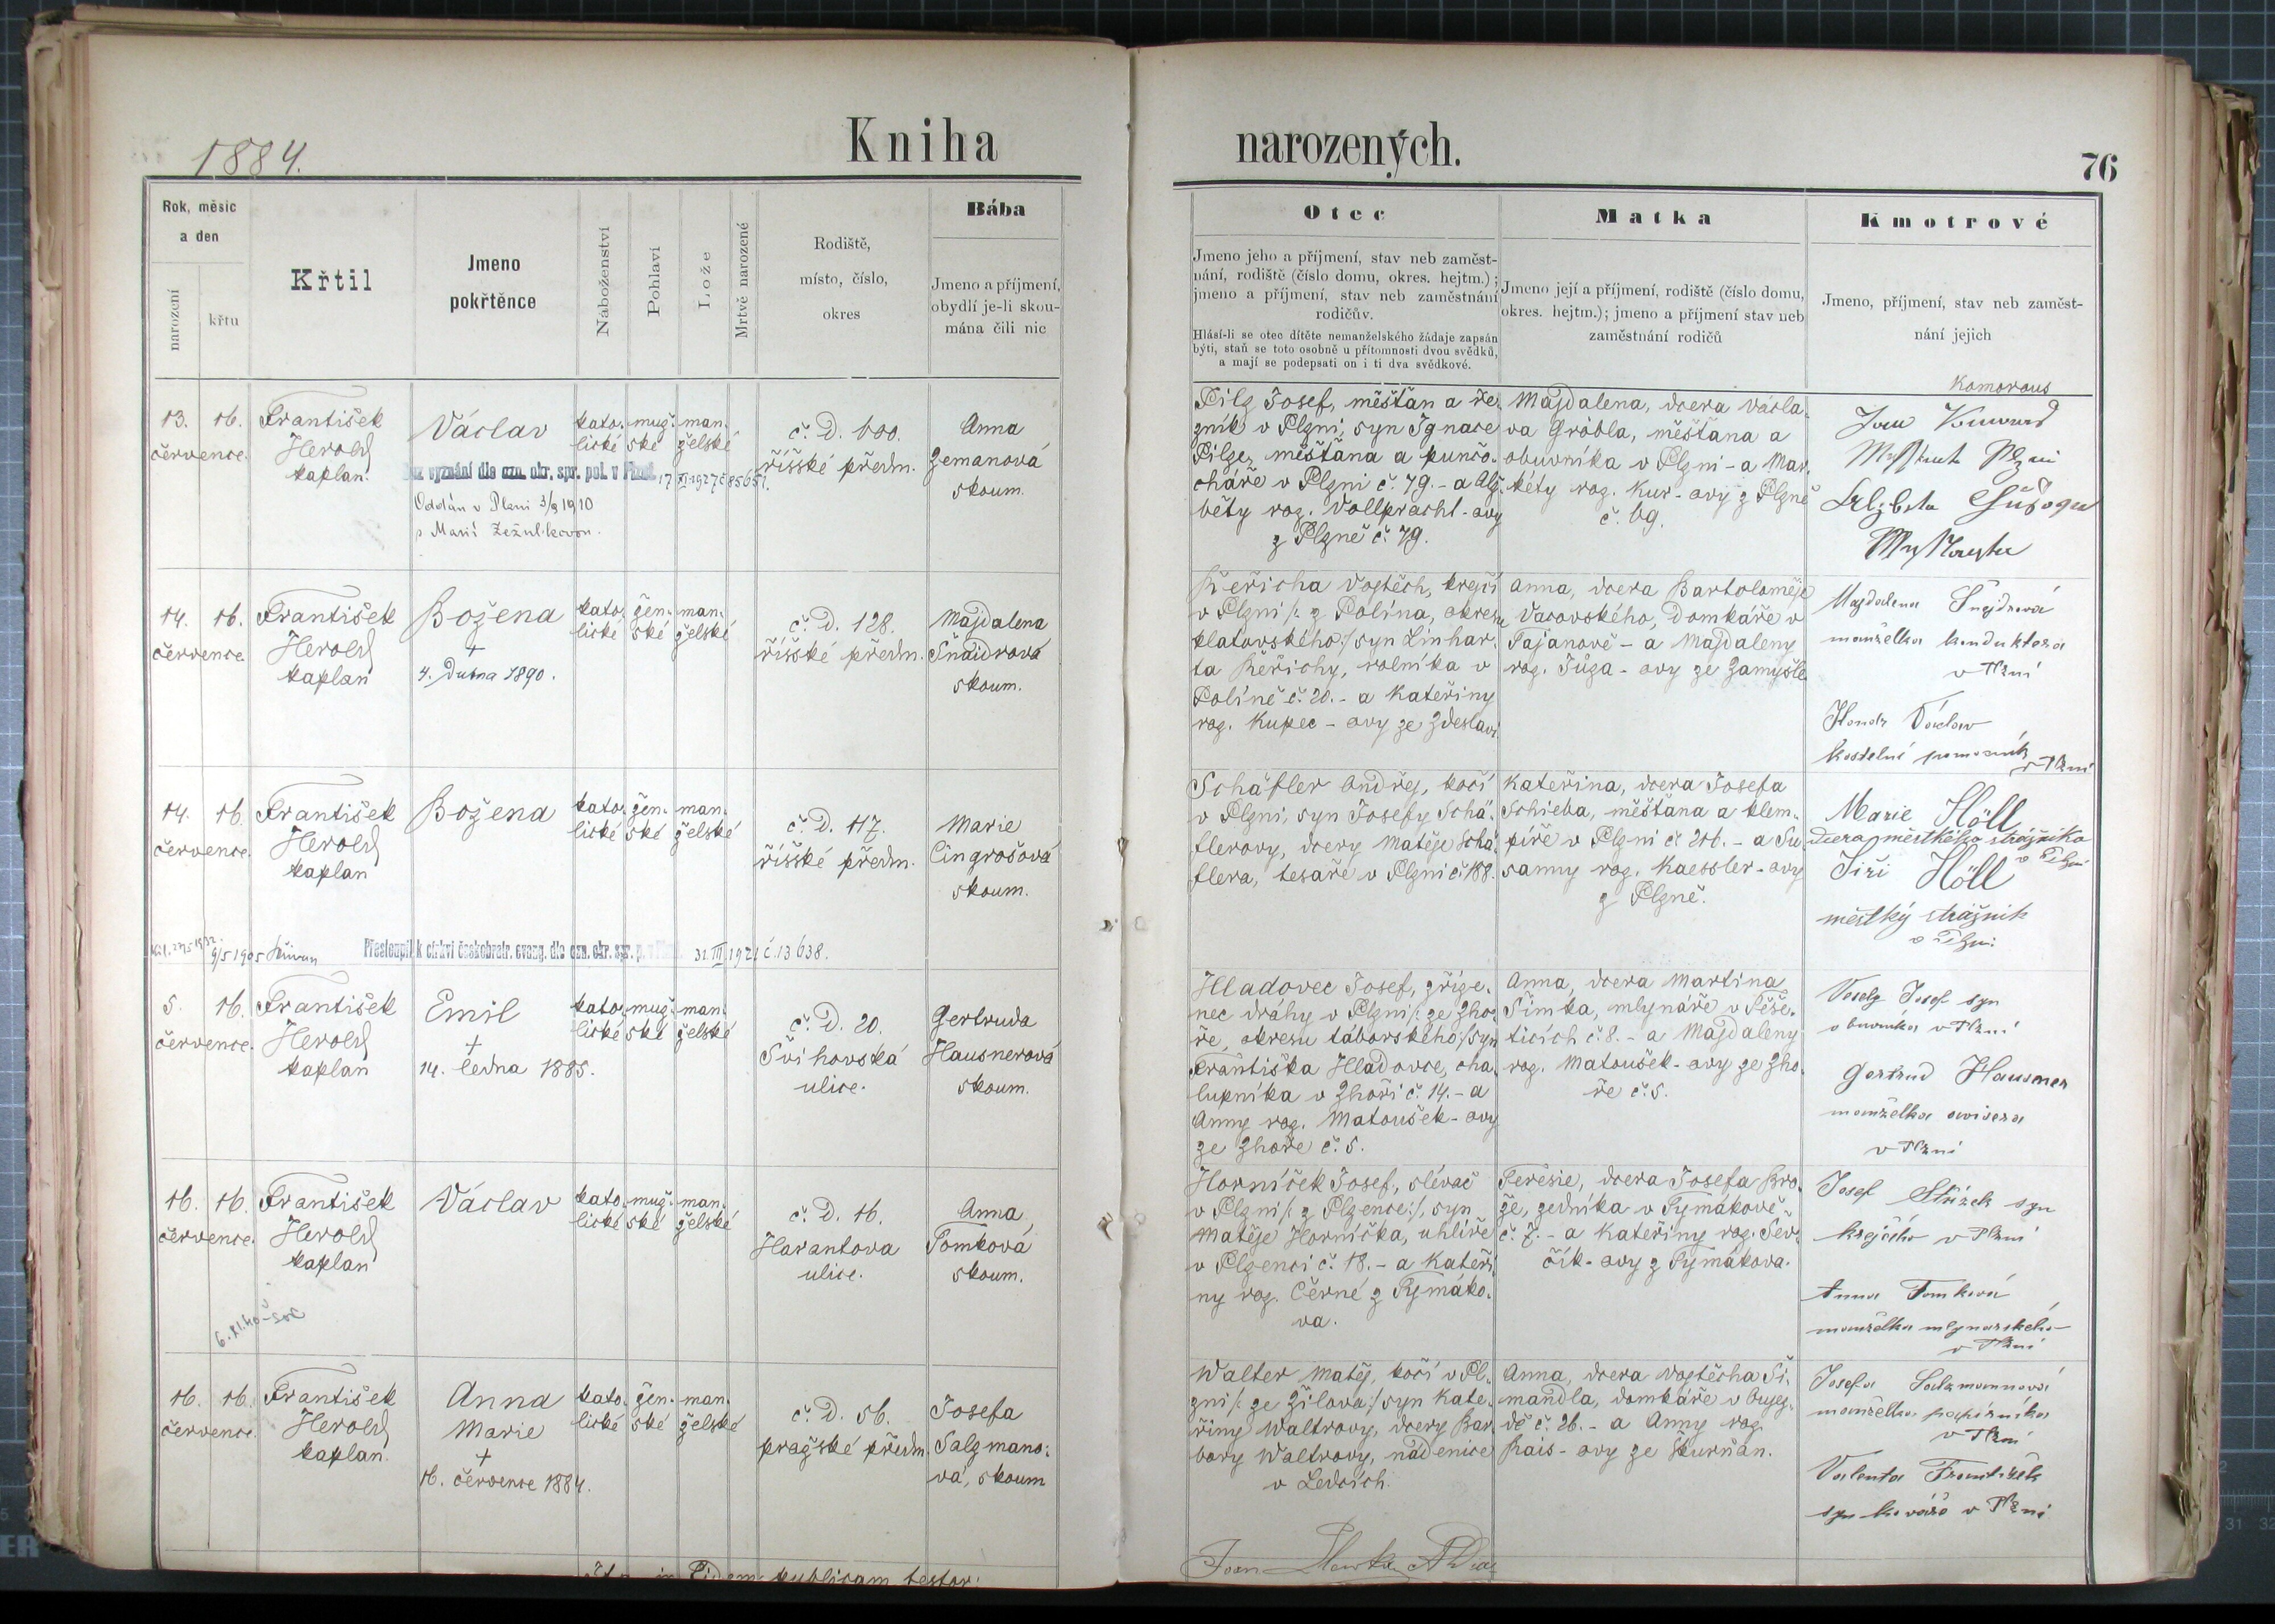 1884.
Kniha
narozených.
76
Rok, měsíc
a den
narození
křtu
Křtil
Jmeno
pokřtěnce
Náboženství
Pohlaví
Lože
Mrtvě narozené
Rodiště,
místo, číslo,
okres
Bába
Jmeno a příjmení,
obydlí je-li skou-
mána čili nic
Otec
Jmeno jeho a příjmení, stav neb zaměst-
nání, rodiště (číslo domu, okres. hejtm.);
jmeno a příjmení, stav neb zaměstnání
rodičův.
Hlásí-li se otec dítěte nemanželského žádaje zapsán
býti, staň se toto osobně u přítomnosti dvou svědků,
a mají se podepsati on i ti dva svědkové.
Matka
Jmeno její a příjmení, rodiště (číslo domu,
okres. hejtm.); jmeno a příjmení stav neb
zaměstnání rodičů
Kmotrové
Jmeno, příjmení, stav neb zaměst-
nání jejich
13. 16.
července.
František
Herold
kaplan.
Václav
kato.
lické
muž.
ské
man.
želské
vyznání dle ozn. okr. spr. pol. v 17 XI 1927
Oddán v Plzni 3/9 1910
s Marií
č. D. 600.
říšské předm.
Anna
Zemanová
skoum.
Pilz Josef, měšťan a ře.
zník v Plzni, syn Ignace
Pilze, měšťana a punčo.
cháře v Plzni č. 79. - a Alž.
běty roz. Vollpracht-ovy
z Plzně č. 79.
Majdalena, dcera Václa.
va Gröbla, měšťana a
obuvníka v Plzni - a Mar.
kéty roz. Kur-ovy z Plzně
č. 69.
Komoraus
14. 16.
července
František
Herold
kaplan
Božena
+
4. Dubna 1890.
kato.
lické
žen.
ské
man.
želské
č. D. 128.
říšské předm.
Majdalena
Šnaidrová
skoum.
Keřicha Vojtěch, krejčí
v Plzni /: z Polína, okresu
klatovského:/ syn Linhar.
ta Keřichy, rolníka v
Políně č. 20. - a Kateřiny
roz. Kupec-ovy ze Zdeslavi.
Anna, dcera Bartoloměje
Vacovského, domkáře v
Tajanově - a Majdaleny
roz. Jůza-ovy ze Zamyšle
Magdalena Šnajdrová
manželka kunduktora
v Plzni
Václav
kostelní pomocník
v Plzni
14. 16.
července.
František
Herold
kaplan
Božena
kato.
lické
žen.
ské
man.
želské
č. D. 117.
říšské předm.
Marie
Cingrošová
skoum.
Schäfler Ondřej, kočí
v Plzni, syn Josefy Schä.
flerovy, dcery Matěje Schä.
flera, tesaře v Plzni č. 188.
Kateřina, dcera Josefa
Schieba, měšťana a klem.
píře v Plzni č. 206. - a Su.
sanny roz. Kaessler-ovy
z Plzně.
Marie Höll
dcera městkého strážníka
v Plzni
Jiří Höll
městký strážník
v Plzni
9/5 1905
Přestoupil k církvi českobratr. evang. dle ozn. okr. spr. p. 31. III. 1921 č. 13638.
5. 16.
července.
František
Herold
kaplan
Emil
+
14. ledna 1885.
kato.
lické
muž.
ské
man.
želské
č. D. 20.
Švihovská
ulice.
Gertruda
Hausnerová
skoum.
Hladovec Josef, zříze.
nec dráhy v Plzni /: ze Zho.
ře, okresu táborského:/ syn
Františka Hladovce, cha.
lupníka v Zhoři č. 14. - a
Anny roz. Matoušek-ovy
ze Zhoře č. 5.
Anna, dcera Martina
Šimka, mlynáře v Pěše.
ticích č. 8. - a Majdaleny
roz. Matoušek-ovy ze Zho.
ře č. 5.
Veselý Josef syn
obuvníka v Plzni
Gertrud Hausner
manželka
v Plzni
16. 16.
července.
František
Herold
kaplan
Václav
kato.
lické
muž.
ské
man.
želské
č. D. 16.
Harantova
ulice.
Anna
Tomková
skoum.
Horníček Josef, slévač
v Plzni /: z Plzence:/, syn
Matěje Horníčka, uhlíře
v Plzenci č. 18. - a Kateři.
ny roz. Černé z Tymáko.
va.
Teresie, dcera Josefa Bro.
že, zedníka v Tymákově
č. 7. - a Kateřiny roz. Šev.
čík-ovy z Tymákova.
Josef Střízek syn
krejčího v Plzni
Anna Tomková
manželka mlynarského
v Plzni
16. 16.
července.
František
Herold
kaplan.
Anna
Marie
+
16. července 1884.
kato.
lické
žen.
ské
man.
želské
č. D. 56.
pražské předm.
Josefa
Salzmano.
vá, skoum
Walter Matěj, kočí v Pl.
zni /: ze Žilova:/ syn Kate.
řiny Waltrovy, dcery Bar.
bory Waltrovy, nádenice
v Ledcích.
Anna, dcera Vojtěcha Ši.
mandla, domkáře v Oujez.
dě č. 26. - a Anny roz.
Rais-ovy ze Skurňan.
Josefa Salzmannová
manželka papírníka
v Plzni
Valenta František
syn kováře v Plzni
in Fidem publicam testor: